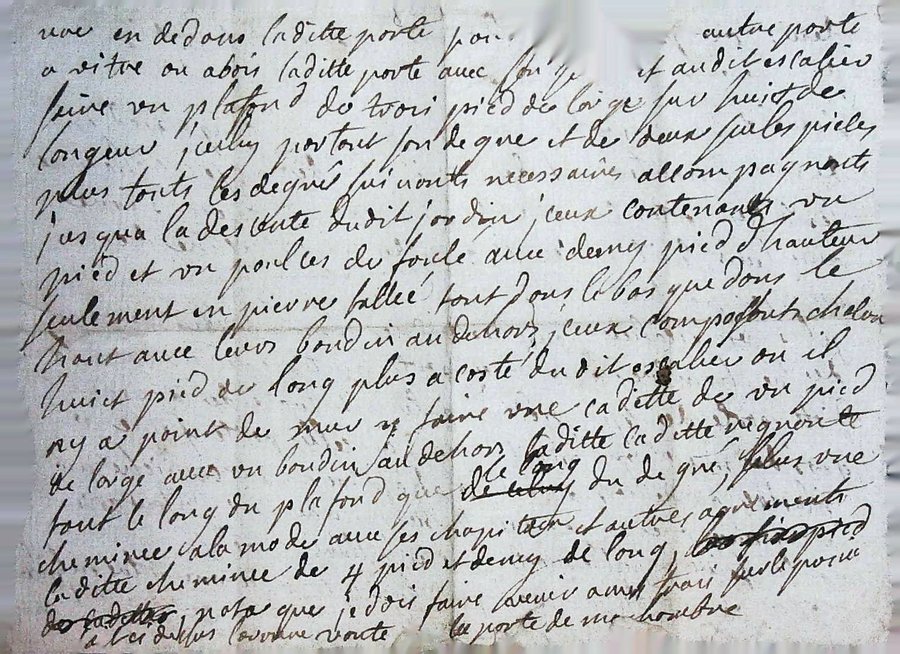 en dedans laditte porte autre porte
a vitre ou abois laditte porte avec et audit escalier
faire un plafond de trois pied de large sur huict de
longeur icelluy portant son degré et de deux sur les pieles
plus touts les degrés suivants necessaires accompagnants
jusqua la desente dudit jardin, jceux contenants un
pied et un poulces de foulé avec demy pied d'hauteur
seulement en pierre tallieé tout dans le bas que dans le
haut avec leurs boudin audehors, jceux composants chalun
huict pied de long plus a costé dudit escalier ou il
ny a point de mur y faire une caditte de un pied
de large avec un boudin audehors laditte caditte regnante
tout le long du plafond que le long du degré, plus une
cheminee a la mode avec ses chapiteau et autres agrements
laditte cheminee de 4 pied et demy de long,
nota que je dois faire venir a mes frais sur le
la porte de ma chambre